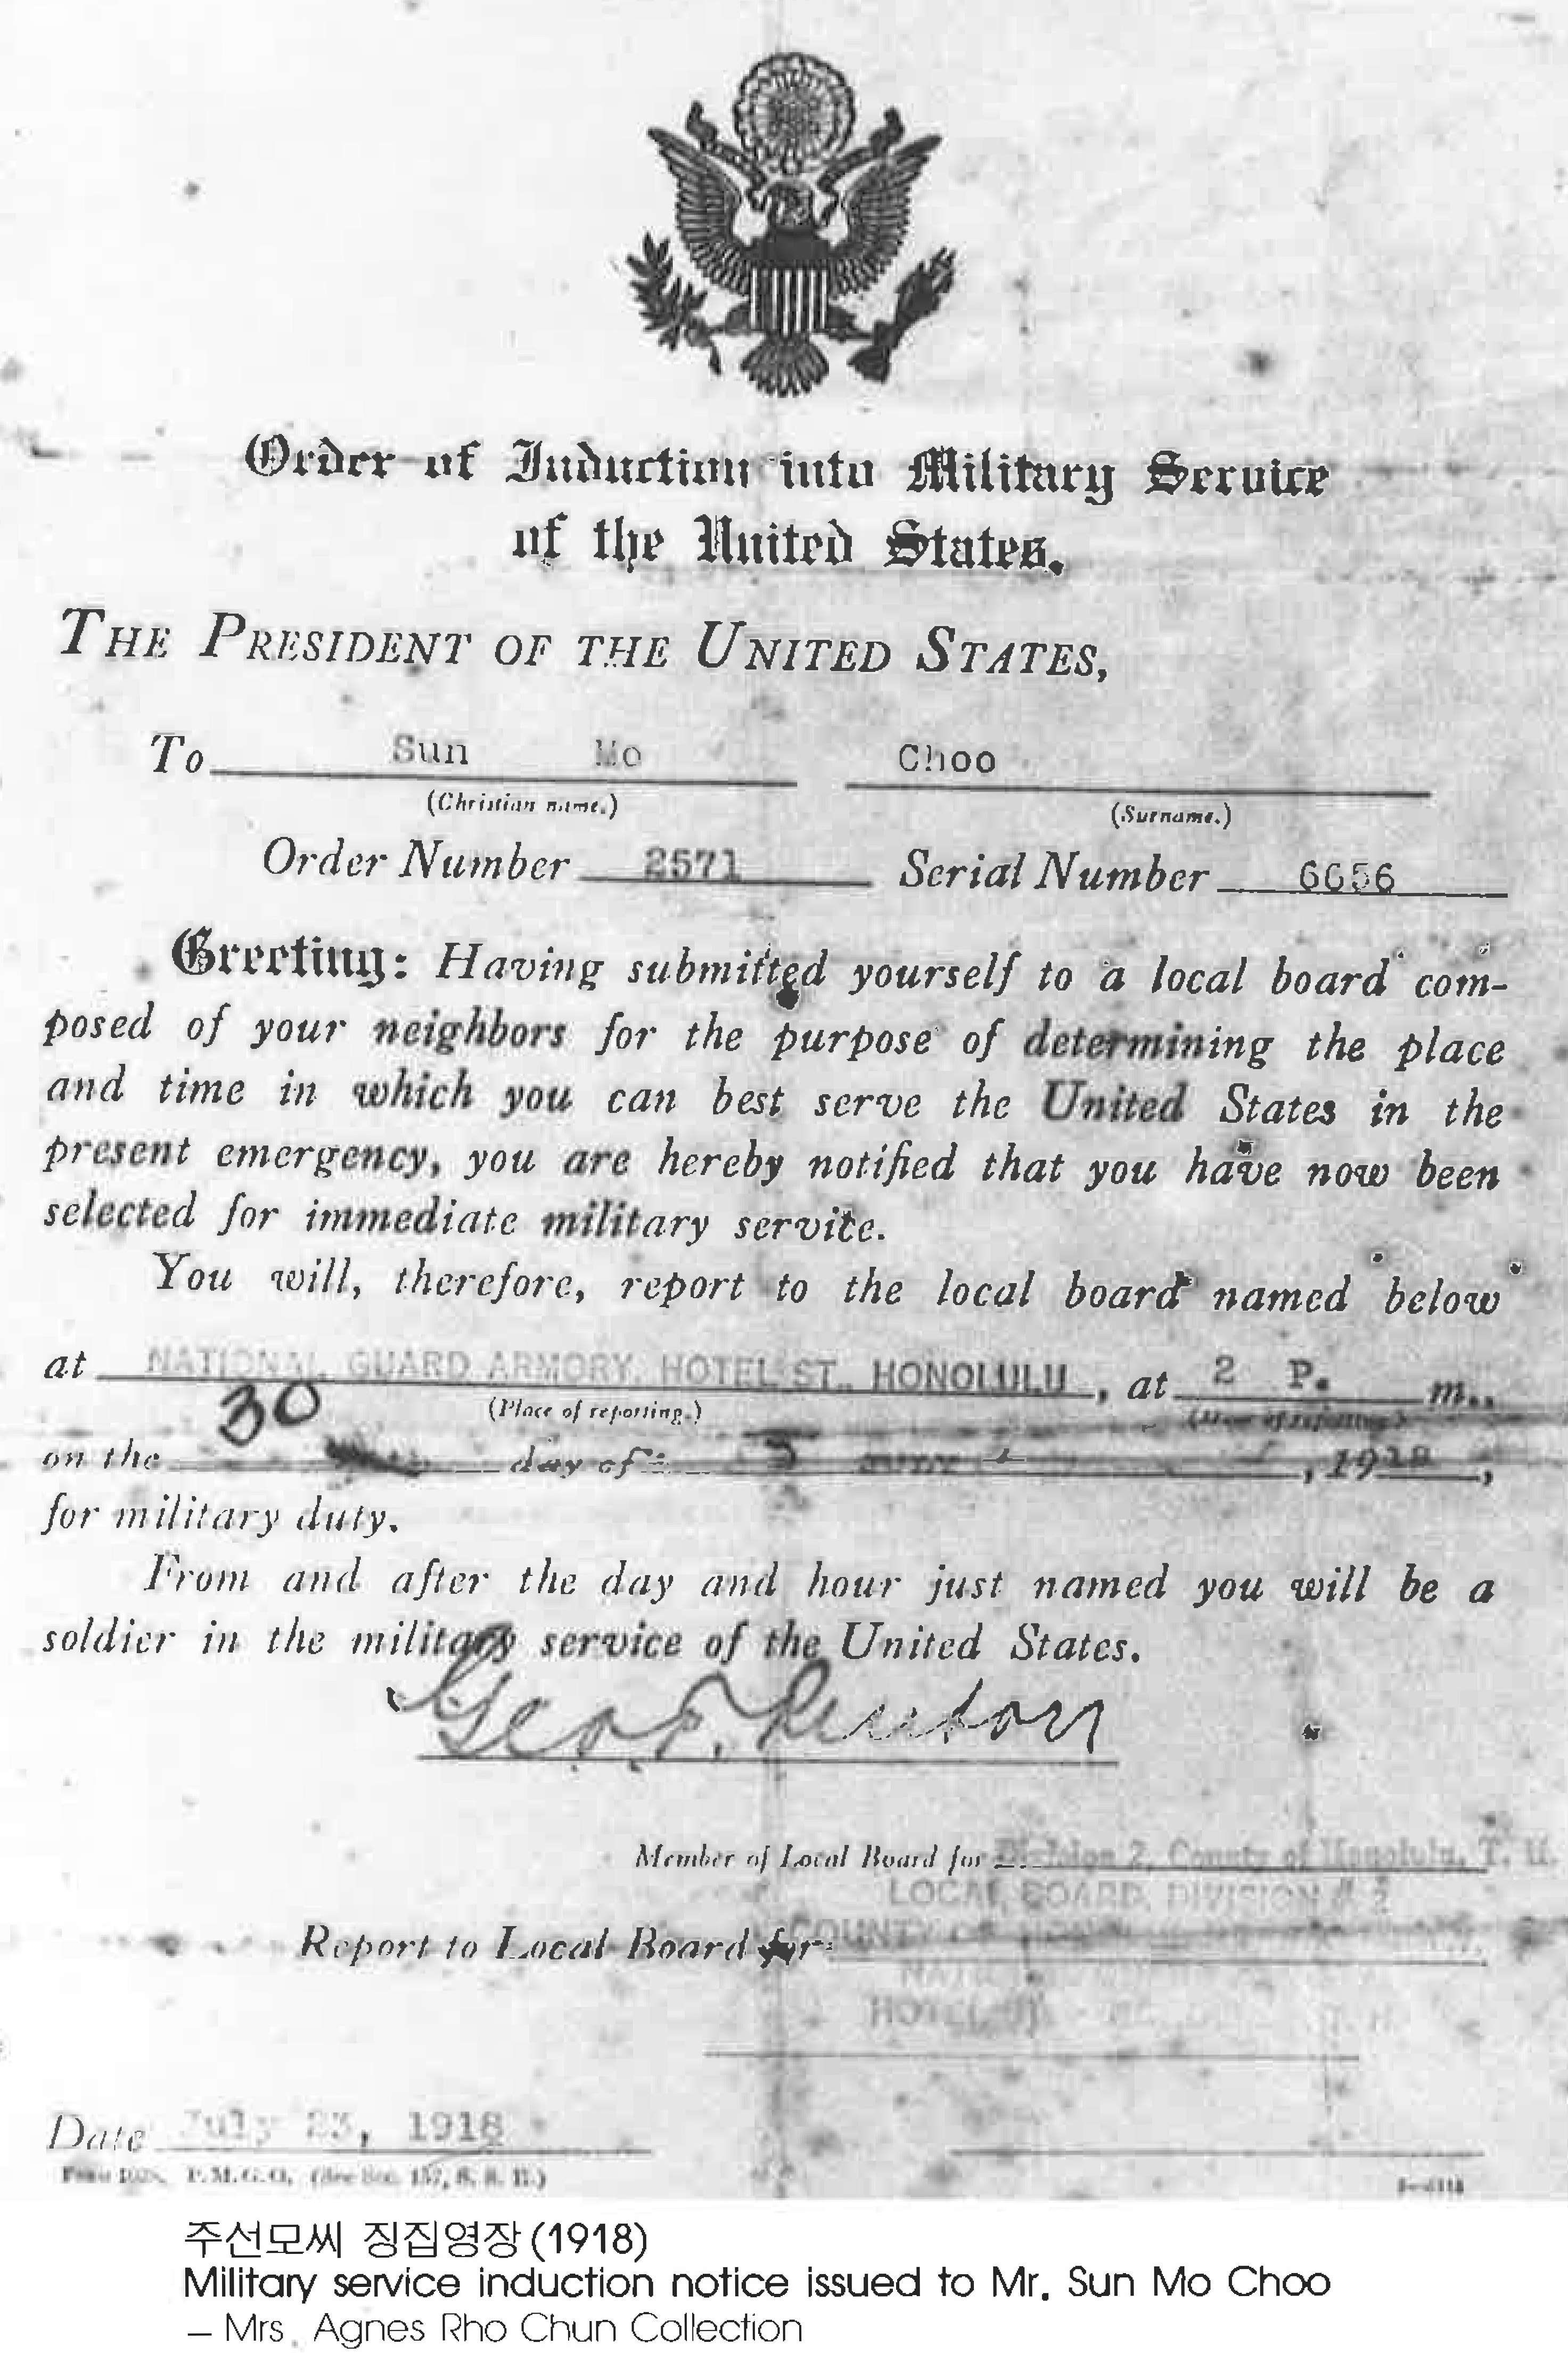 Order of Induction into Military Service
of the United States.
THE PRESIDENT OF THE UNITED STATES,
To Sun Mo Choo
(Christian name.) (Surname.)
Order Number 2571 Serial Number 6656
Greeting: Having submitted yourself to a local board com-
posed of your neighbors for the purpose of determining the place
and time in which you can best serve the United States in the
present emergency, you are hereby notified that you have now been
selected for immediate military service.
You will, therefore, report to the local board named below
at NATIONAL GUARD ARMORY, HOTEL ST., HONOLULU, at 2 P. m.,
(Place of reporting.) (Hour of reporting.)
on the 30 day of July, 1918,
for military duty.
From and after the day and hour just named you will be a
soldier in the military service of the United States.
Geo. F. Renton
Member of Local Board for Division 2, County of Honolulu, T. H.
LOCAL BOARD, DIVISION # 2
Report to Local Board for COUNTY OF
HOTEL ST.
Date July 23, 1918
Form 1028, P.M.G.O. (See Sec. 157, S. S. R.)
주선모씨 징집영장(1918)
Military service induction notice issued to Mr. Sun Mo Choo
– Mrs. Agnes Rho Chun Collection